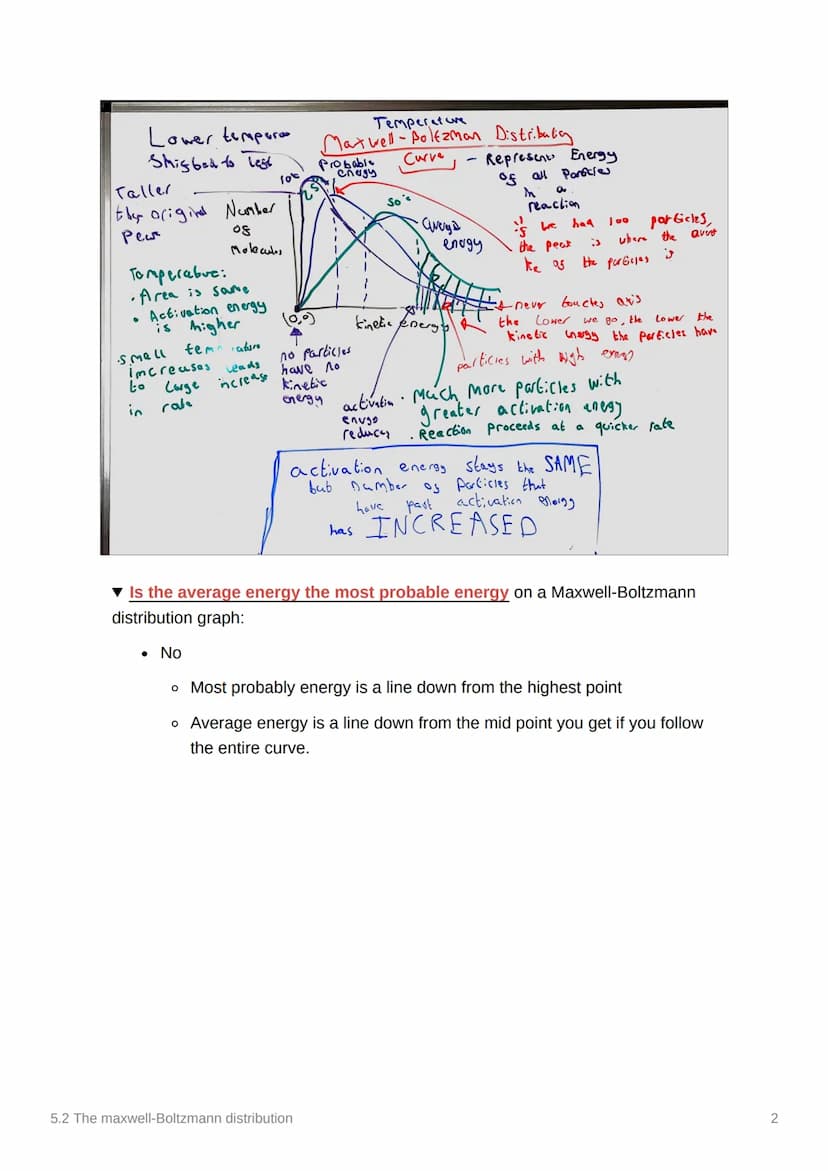 Temperature
Maxwell-Boltzman Distributig
Curve
- Represents Energy
of all Particles
in a
reaction
Lower tempera
Shigbed to left
Taller
the original
Peak
Probable
energy
10°c
25
50°c
Number
of
Molecules
average
energy
if we had 100 particles,
the peak is where the
Ke of the particles is
Temperature:
• Area is same
• Activation energy
is higher
• Small temperature
increases leads
to large increase
in rate
(0,0)
kinetic energy
no particles
have no
kinetic
energy
never touches axis
the lower we go, the lower the
kinetic energy the particles have
particles with high energy
activation
energy
reduces
• Much more particles with
greater activation energy
• Reaction proceeds at a quicker rate
activation energy stays the SAME
but number of particles that
have past activation energy
has INCREASED
▼ Is the average energy the most probable energy on a Maxwell-Boltzmann
distribution graph:
• No
◦ Most probably energy is a line down from the highest point
◦ Average energy is a line down from the mid point you get if you follow
the entire curve.
5.2 The maxwell-Boltzmann distribution
2